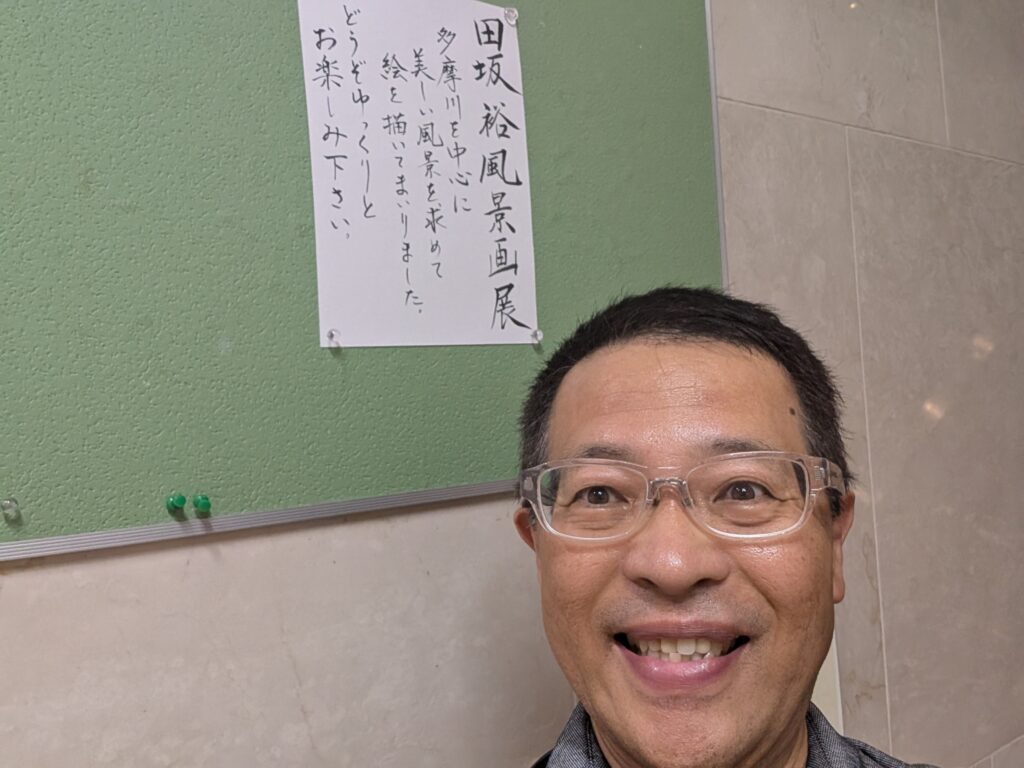 田坂裕風景画展
多摩川を中心に
美しい風景を求めて
絵を描いてまいりました。
どうぞゆっくりと
お楽しみ下さい。